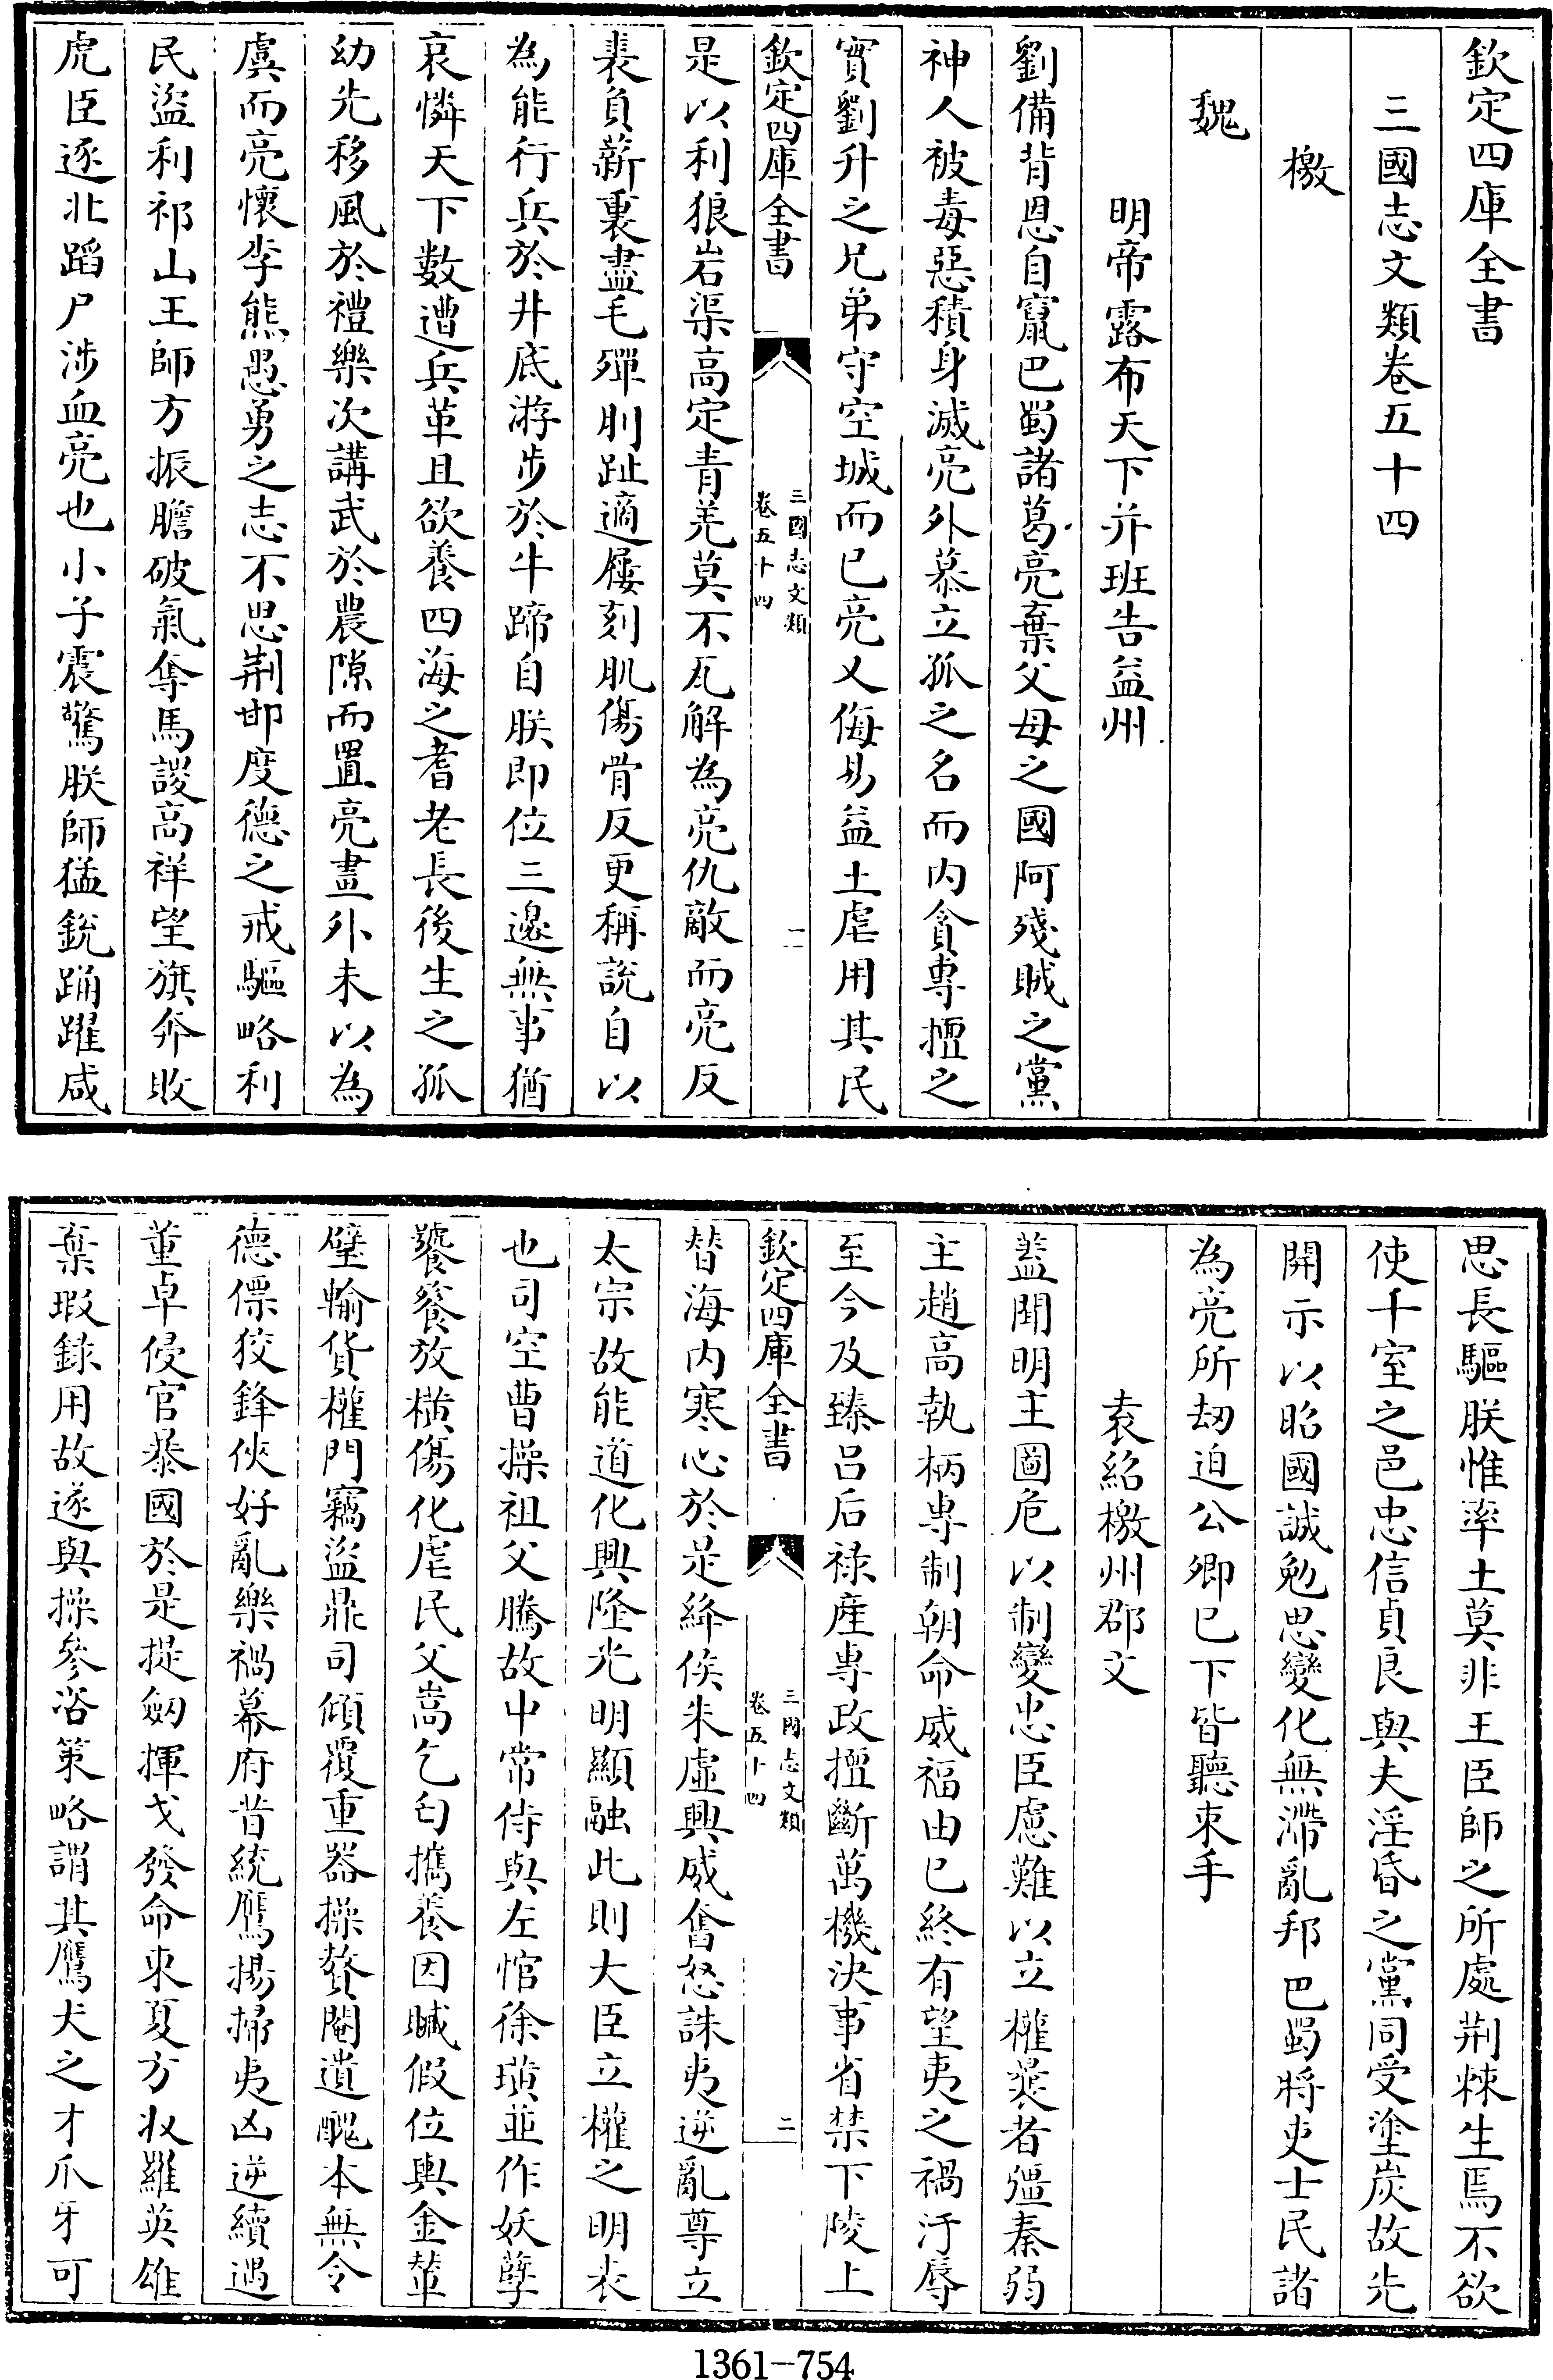 欽定四庫全書
三國志文類卷五十四
檄
魏
明帝露布天下并班告益州
劉備背恩自竄巴蜀諸葛亮棄父母之國阿殘賊之黨
神人被毒惡積身滅亮外慕立孤之名而內貪專擅之
實劉升之兄弟守空城而已亮又侮易益土虐用其民
欽定四庫全書
三國志文類
卷五十四
一
是以利狼岩渠高定青羌莫不瓦解為亮仇敵而亮反
裘負薪裏盡毛殫刖趾適屨刻肌傷骨反更稱說自以
為能行兵於井底游步於牛蹄自朕即位三邊無事猶
哀憐天下數遭兵革且欲養四海之耆老長後生之孤
幼先移風於禮樂次講武於農隙而置亮畫外未以為
虞而亮懷李熊愚勇之志不思荆邯度德之戒驅略利
民盜利祁山王師方振膽破氣奪馬謖高祥望旗奔敗
虎臣逐北蹈尸涉血亮也小子震驚朕師猛銳踊躍咸
思長驅朕惟率土莫非王臣師之所處荆棘生焉不欲
使千室之邑忠信貞良與夫淫昏之黨同受塗炭故先
開示以昭國誠勉思變化無滯亂邦巴蜀將吏士民諸
為亮所刼迫公卿已下皆聽束手
袁紹檄州郡文
蓋聞明主圖危以制變忠臣慮難以立權曩者彊秦弱
主趙高執柄專制朝命威福由已終有望夷之禍汙辱
至今及臻呂后祿產專政擅斷萬機決事省禁下陵上
欽定四庫全書
三國志文類
卷五十四
二
替海內寒心於是絳侯朱虛興威奮怒誅夷逆亂尊立
太宗故能道化興隆光明顯融此則大臣立權之明表
也司空曹操祖父騰故中常侍與左悺徐璜並作妖孽
饕餮放橫傷化虐民父嵩乞匄攜養因贓假位輿金輦
璧輸貨權門竊盜鼎司傾覆重器操贅閹遺醜本無令
德僄狡鋒俠好亂樂禍幕府昔統鷹揚掃夷凶逆續遇
董卓侵官暴國於是提劒揮戈發命東夏方收羅英雄
棄瑕錄用故遂與操參咨策略謂其鷹犬之才爪牙可
1361-754